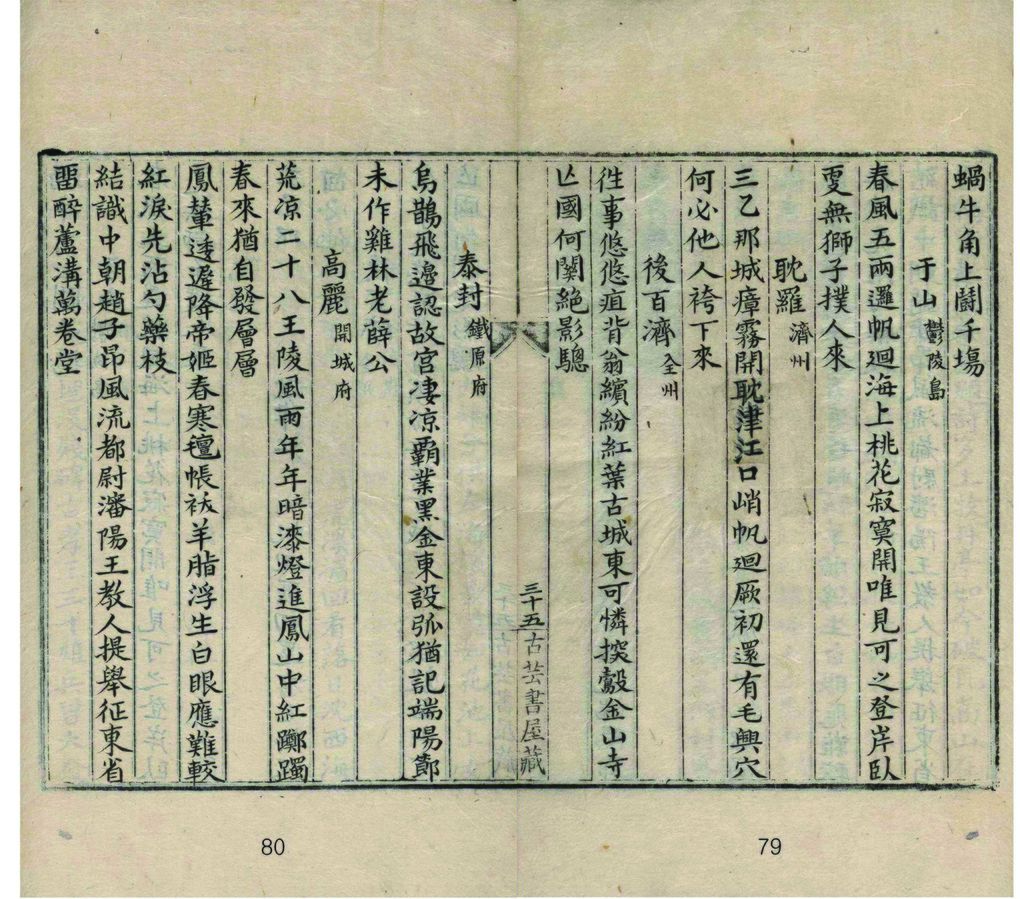 蝸牛角上鬪千塲
于山 鬱陵島
春風五兩邏帆廻海上桃花寂寞開唯見可之登岸臥
更無獅子撲人來
耽羅 濟州
三乙那城瘴霧開耽津江口峭帆廻厥初還有毛興穴
何必他人袴下來
後百濟 全州
徃事悠悠疽背翁繽紛紅葉古城東可憐揬鷇金山寺
亾國何關絶影驄
三十五古芸書屋藏
泰封 鐵原府
烏鵲飛邉認故宮凄凉覇業黑金東設弧猶記端陽節
未作雞林老薛公
高麗 開城府
荒凉二十八王陵風雨年年暗漆燈進鳳山中紅躑躅
春來猶自發層層
鳳輦逶遲降帝姬春寒氊帳袚羊脂浮生白眼應難較
紅淚先沾勺藥枝
結識中朝趙子昂風流都尉瀋陽王教人提舉征東省
畱醉蘆溝萬卷堂
80
79